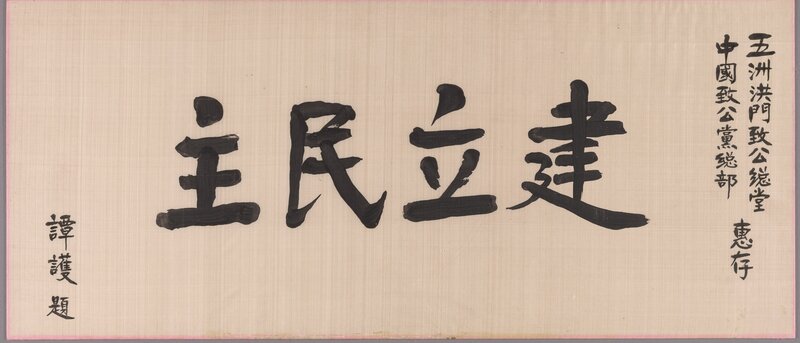 五洲洪門致公總堂
中國致公黨總部
惠存
建立民主
譚護題